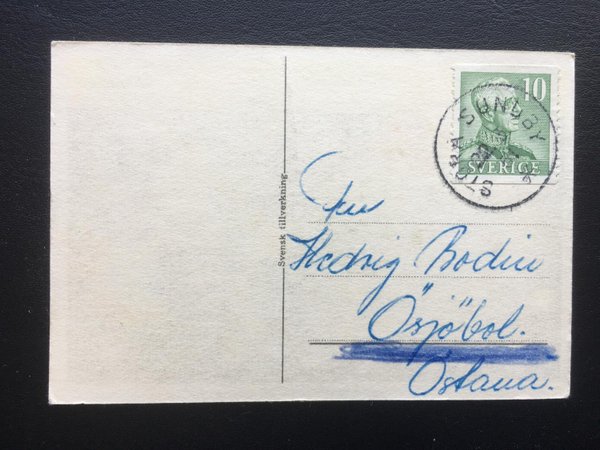 10
SVERIGE
STORA SUNDBY
Svensk tillverkning
Fru
Hedvig Bodin
Ösjöbol.
Östana.